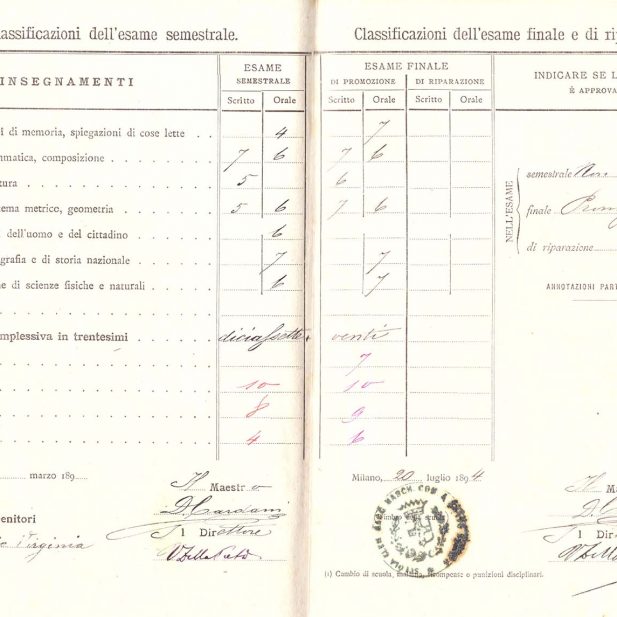 lassificazioni dell'esame semestrale.
Classificazioni dell'esame finale e di ri
INSEGNAMENTI
ESAME
SEMESTRALE
Scritto Orale
ESAME FINALE
DI PROMOZIONE DI RIPARAZIONE
Scritto Orale Scritto Orale
INDICARE SE L
È APPROVA
i di memoria, spiegazioni di cose lette . . 4 7
mmatica, composizione . . . . . . . . 7 6 7 6
tura . . . . . . . . . . . . . . . 5 6
ema metrico, geometria . . . . . . . 5 6 7 6
i dell'uomo e del cittadino . . . . . . 6
grafia e di storia nazionale . . . . . . 7 7
ne di scienze fisiche e naturali . . . . 6 7
NELL'ESAME
semestrale Non
finale Prom
di riparazione
ANNOTAZIONI PART
mplessiva in trentesimi . . . . . . diciassette venti
7
10 10
8 9
4 6
marzo 189
Il Maestro
D. Cardani
Il Direttore
enitori
Virginia
Milano, 20 luglio 1894
(1) Cambio di scuola, malattia, ricompense o punizioni disciplinari.
Il Ma
D. C
Il Dir